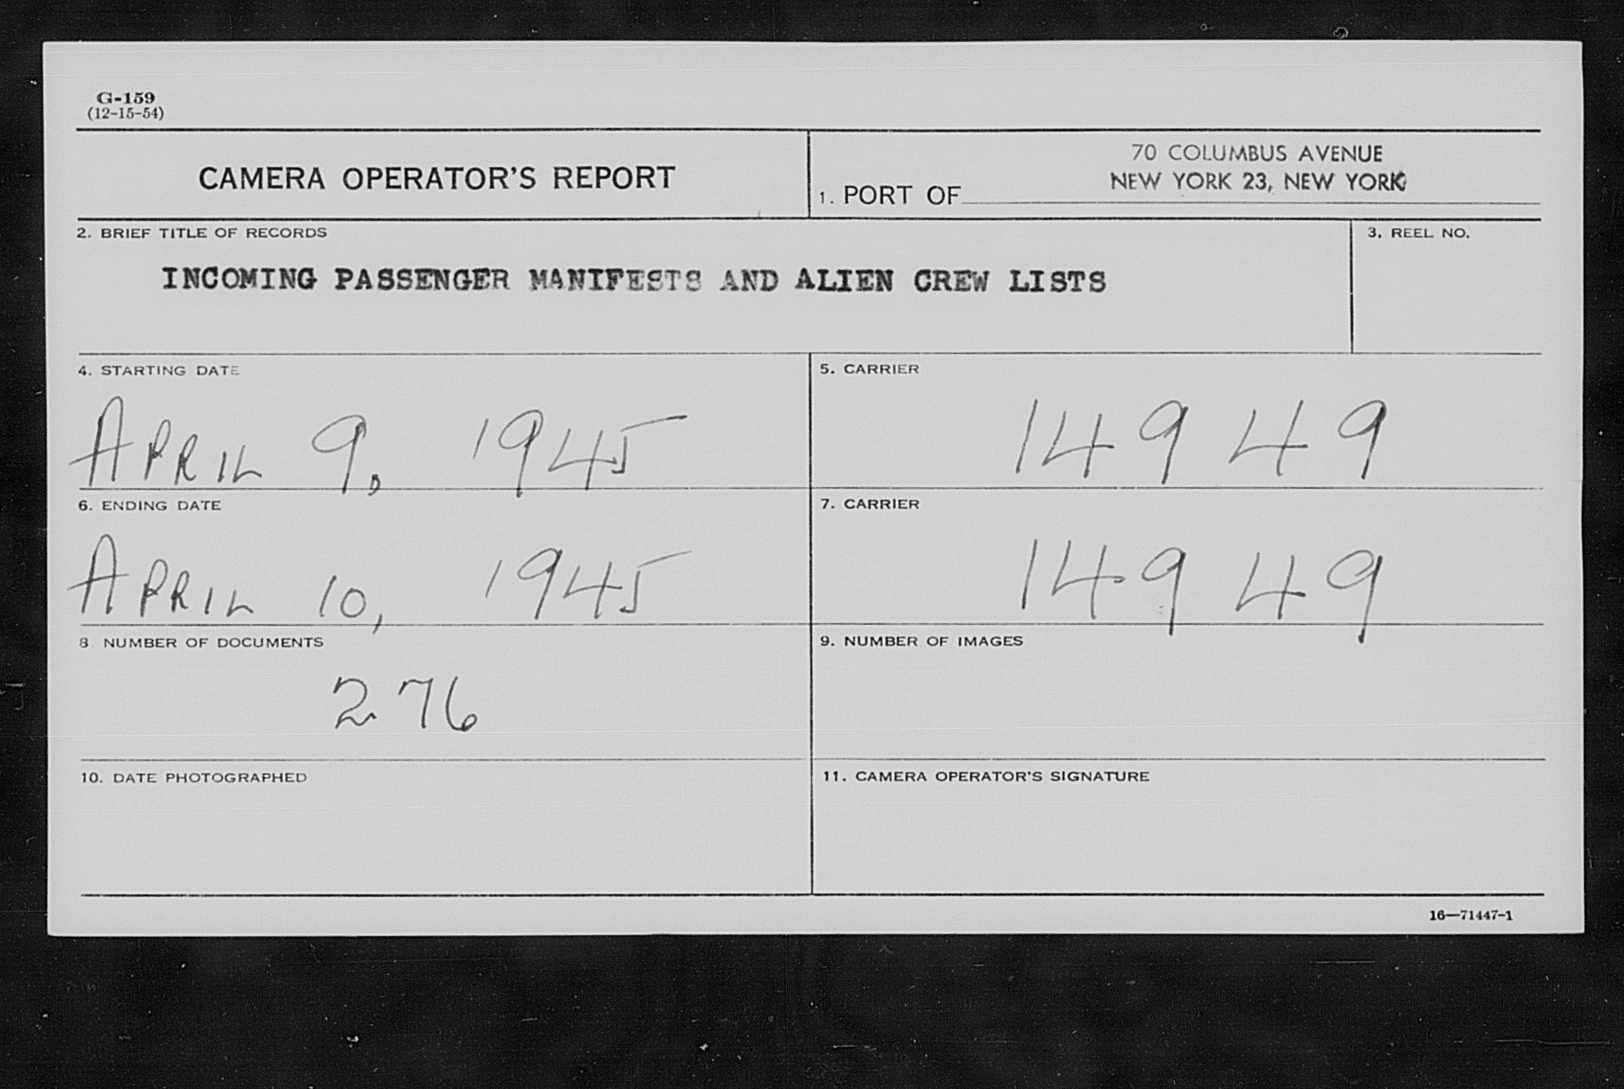 G-159
(12-15-54)
CAMERA OPERATOR'S REPORT
1. PORT OF
70 COLUMBUS AVENUE
NEW YORK 23, NEW YORK
2. BRIEF TITLE OF RECORDS
INCOMING PASSENGER MANIFESTS AND ALIEN CREW LISTS
3. REEL NO.
4. STARTING DATE
APRIL 9, 1945
5. CARRIER
14949
6. ENDING DATE
APRIL 10, 1945
7. CARRIER
14949
8 NUMBER OF DOCUMENTS
276
9. NUMBER OF IMAGES
10. DATE PHOTOGRAPHED
11. CAMERA OPERATOR'S SIGNATURE
16—71447-1